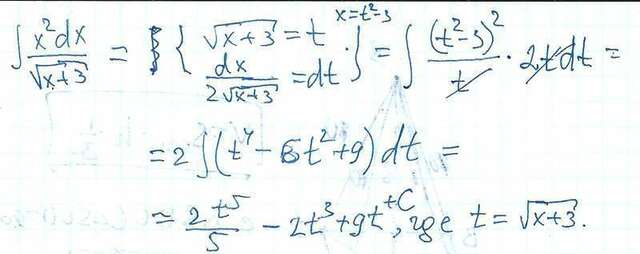 ∫ x²dx / √(x+3) = { √(x+3) = t, x = t²-3, dx / 2√(x+3) = dt } = ∫ (t²-3)² / t · 2t dt =
= 2 ∫ (t⁴ - 6t² + 9) dt =
= 2t⁵ / 5 - 2t³ + 9t + C, где t = √(x+3).